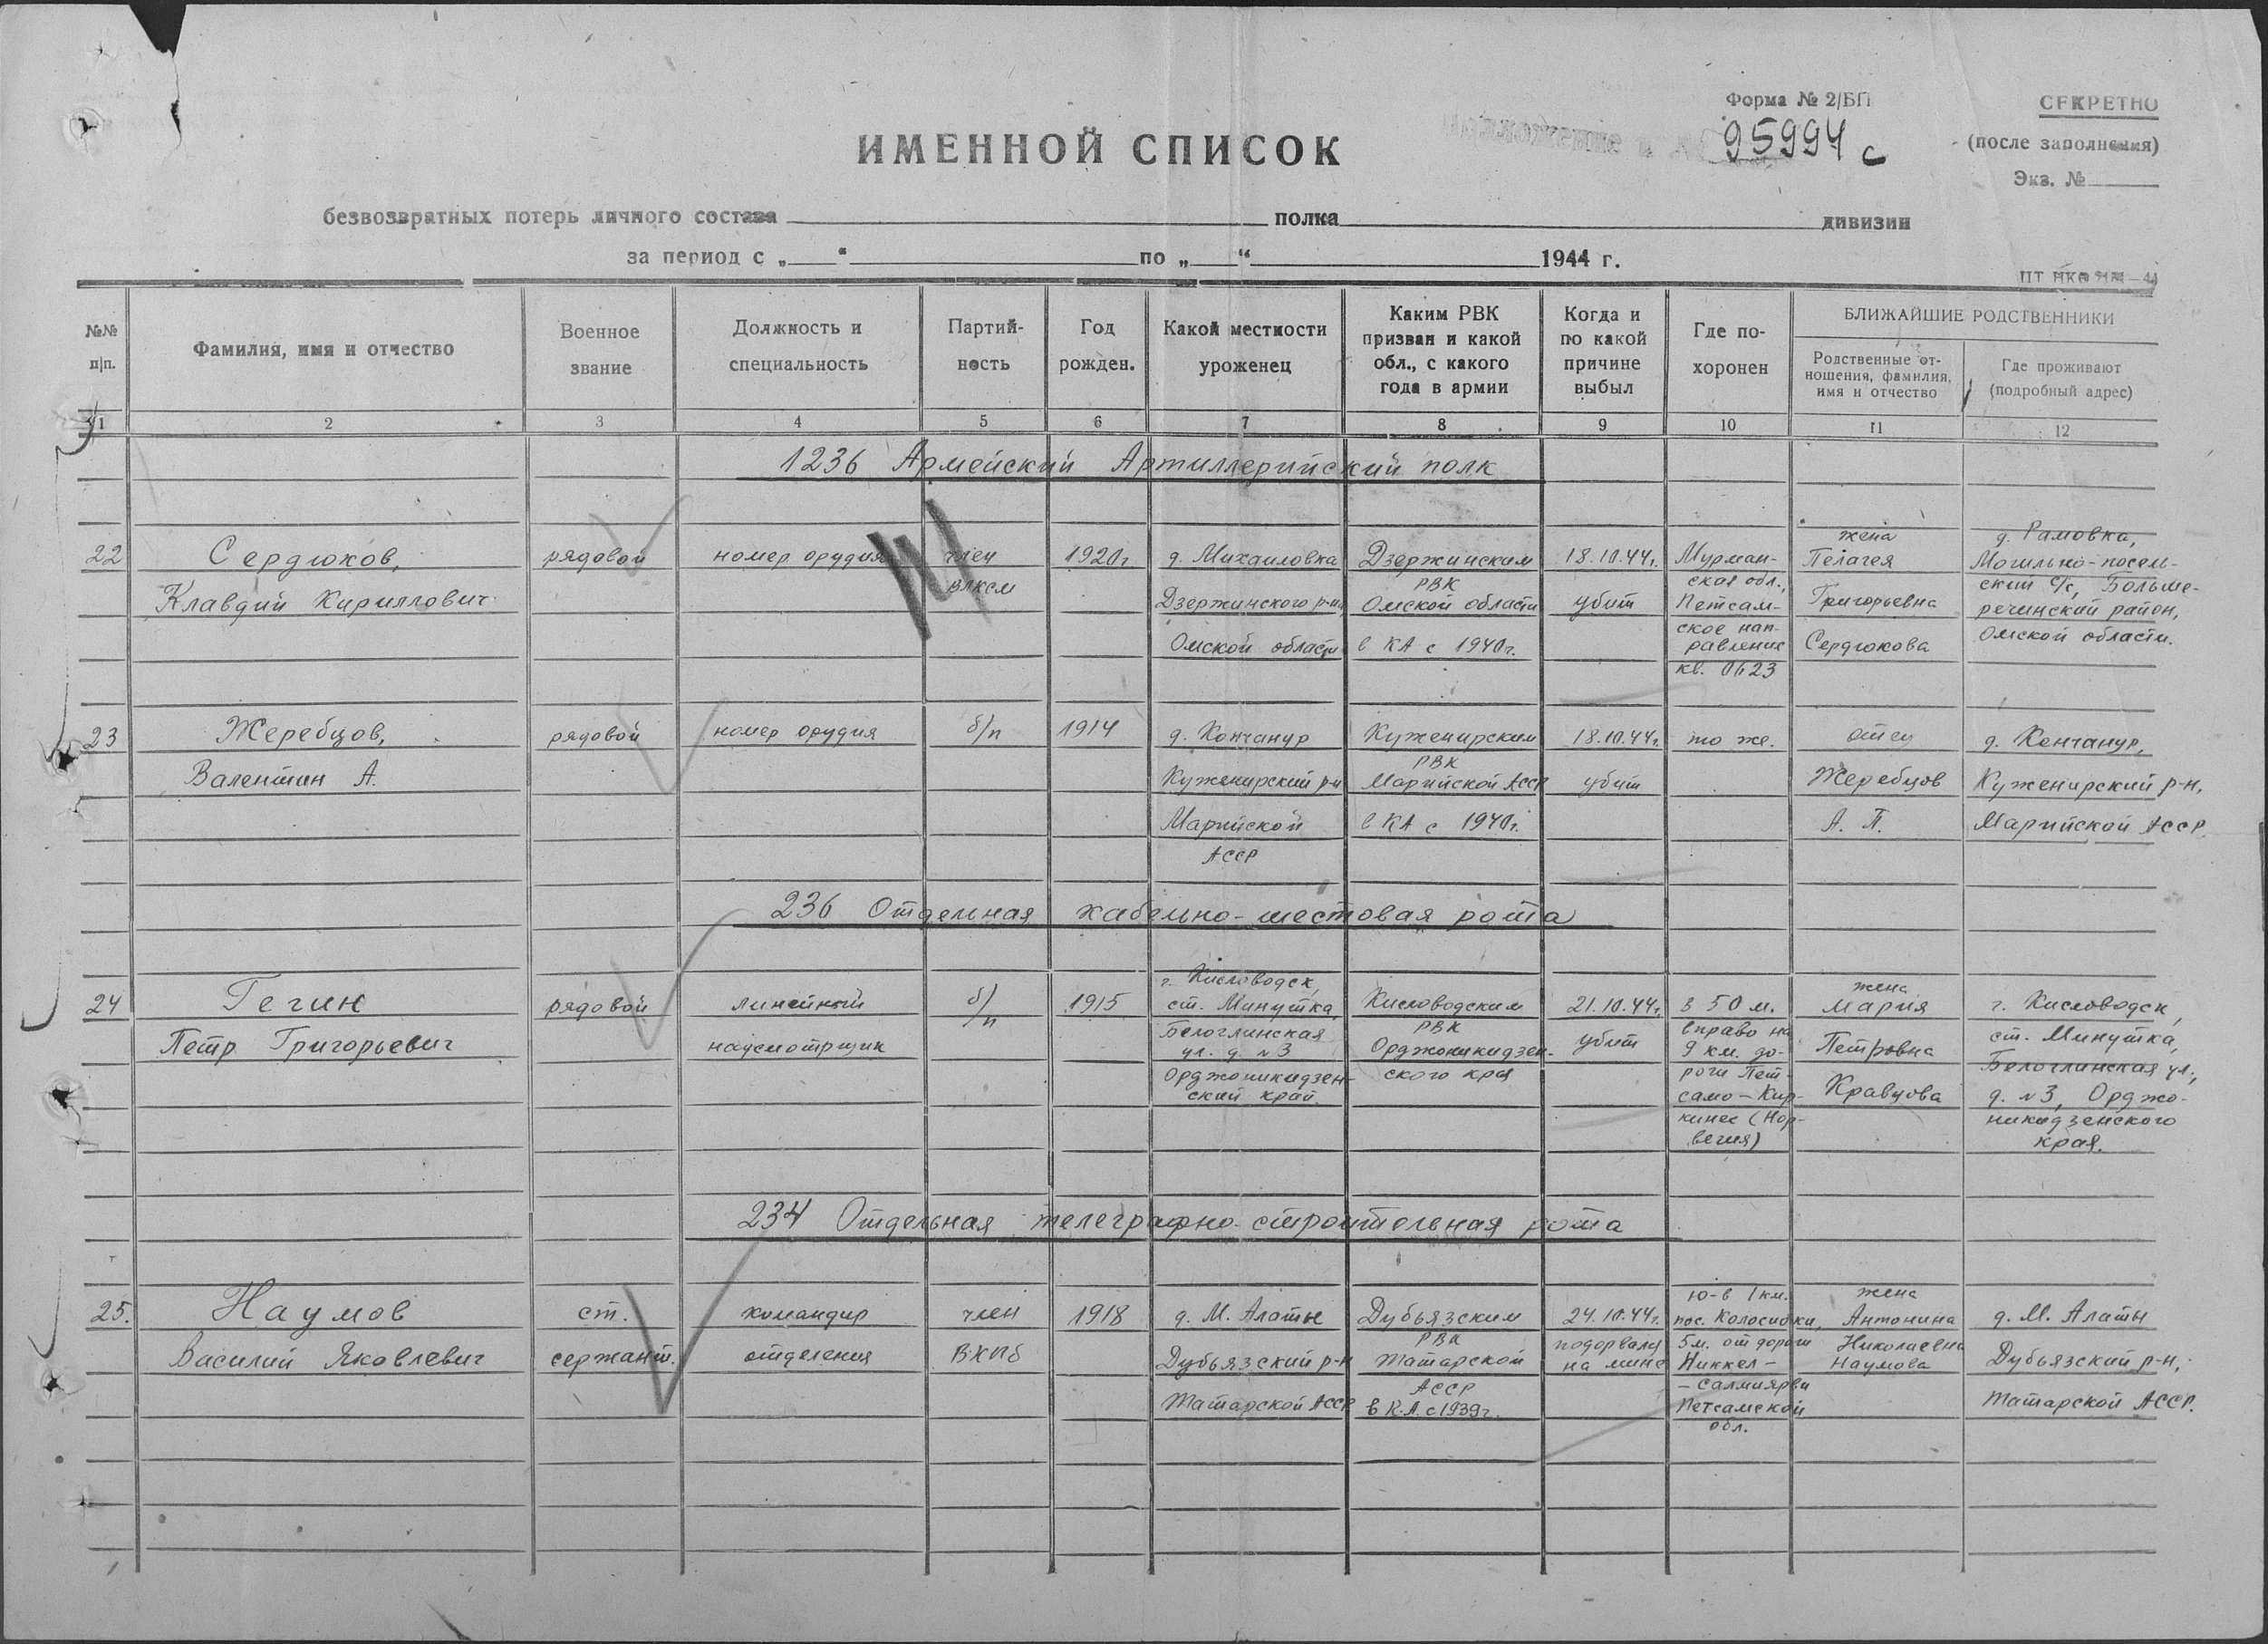 Форма № 2/БП
СЕКРЕТНО
95994 с
(после заполнения)
Экз. №
ИМЕННОЙ СПИСОК
безвозвратных потерь личного состава полка дивизии
за период с „ “ по „ “ 1944 г.
№№ п|п.
Фамилия, имя и отчество
Военное звание
Должность и специальность
Партий-
ность
Год рожден.
Какой местности уроженец
Каким РВК
призван и какой
обл., с какого
года в армии
Когда и
по какой
причине
выбыл
Где по-
хоронен
БЛИЖАЙШИЕ РОДСТВЕННИКИ
Родственные от-
ношения, фамилия,
имя и отчество
Где проживают
(подробный адрес)
1 2 3 4 5 6 7 8 9 10 11 12
1236 Армейский Артиллерийский полк
22
Сердюков,
Клавдий Кириллович
рядовой
номер орудия
член
ВЛКСМ
1920г
д. Михаиловка
Дзержинского р-на
Омской области
Дзержинским
РВК
Омской области
в КА с 1940г.
18.10.44г.
убит
Мурман-
ская обл.,
Петсам-
ское нап-
равление
кв. 0623
жена
Пелагея
Григорьевна
Сердюкова
д. Рамовка,
Могильно-посель-
ский с/с, Больше-
реченский район,
Омской области.
23
Жеребцов,
Валентин А.
рядовой
номер орудия
б/п
1914
д. Кончанур
Куженирский р-н
Марийской
АССР
Куженирским
РВК
Марийской АССР
в КА с 1940г.
18.10.44г.
убит
то же.
отец
Жеребцов
А. П.
д. Кончанур,
Куженирский р-н,
Марийской АССР.
236 Отдельная кабельно-шестовая рота
24
Гечин
Петр Григорьевич
рядовой
линейный
надсмотрщик
б/п
1915
г. Кисловодск,
ст. Минутка,
Белоглинская
ул. д. №3
Орджоникидзен-
ский край.
Кисловодским
РВК
Орджоникидзен-
ского края
21.10.44г.
убит
в 50 м.
вправо на
9 км. до-
роги Пет-
само-Кир-
кинес (Нор-
вегия)
жена
Мария
Петровна
Кравцова
г. Кисловодск,
ст. Минутка,
Белоглинская ул.,
д. №3, Орджо-
никидзенского
края.
234 Отдельная телеграфно-строительная рота
25.
Наумов
Василий Яковлевич
ст.
сержант.
командир
отделения
член
ВКПб
1918
д. М. Алаты
Дубьязский р-н
Татарской АССР
Дубьязским
РВК
Татарской
АССР
в К.А. с 1939г.
24.10.44г.
подорвался
на мине
ю-в 1 км.
пос. Колосиоки,
5 м. от дороги
Никкел-
-Салмиярви
Петсамской
обл.
жена
Антонина
Николаевна
Наумова
д. М. Алаты
Дубьязский р-н,
Татарской АССР.